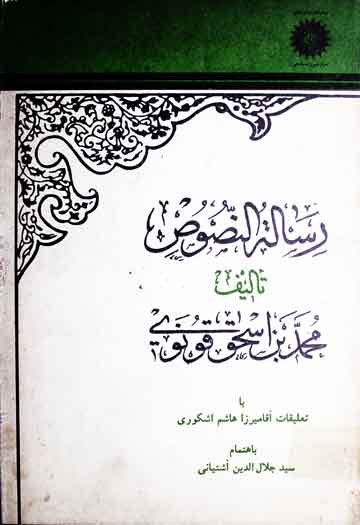 رسالة النّصُوص
تأليف
محمّد بن اسحق قونوي
با
تعليقات آقاميرزا هاشم اشكورى
باهتمام
سيد جلال الدين آشتيانى